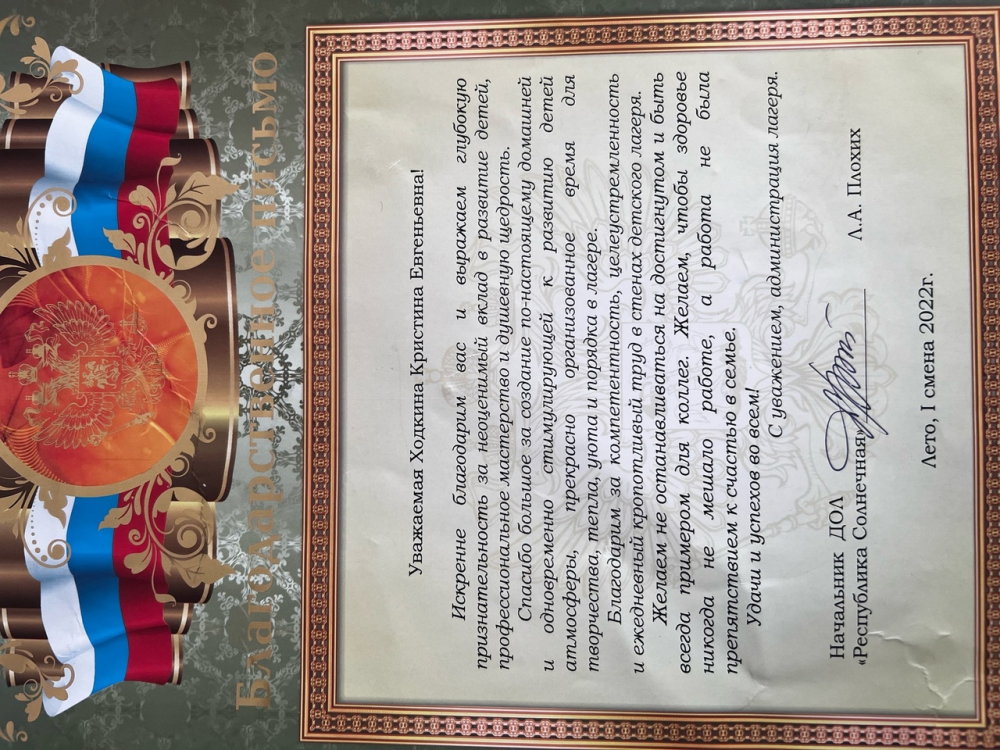 Благодарственное письмо
Уважаемая Ходкина Кристина Евгеньевна!
Искренне благодарим вас и выражаем глубокую
признательность за неоценимый вклад в развитие детей,
профессиональное мастерство и душевную щедрость.
Спасибо большое за создание по-настоящему домашней
и одновременно стимулирующей к развитию детей
атмосферы, прекрасно организованное время для
творчества, тепла, уюта и порядка в лагере.
Благодарим за компетентность, целеустремленность
и ежедневный кропотливый труд в стенах детского лагеря.
Желаем не останавливаться на достигнутом и быть
всегда примером для коллег. Желаем, чтобы здоровье
никогда не мешало работе, а работа не была
препятствием к счастью в семье.
Удачи и успехов во всем!
С уважением, администрация лагеря.
Начальник ДОЛ
«Республика Солнечная» Л.А. Плохих
Лето, I смена 2022г.